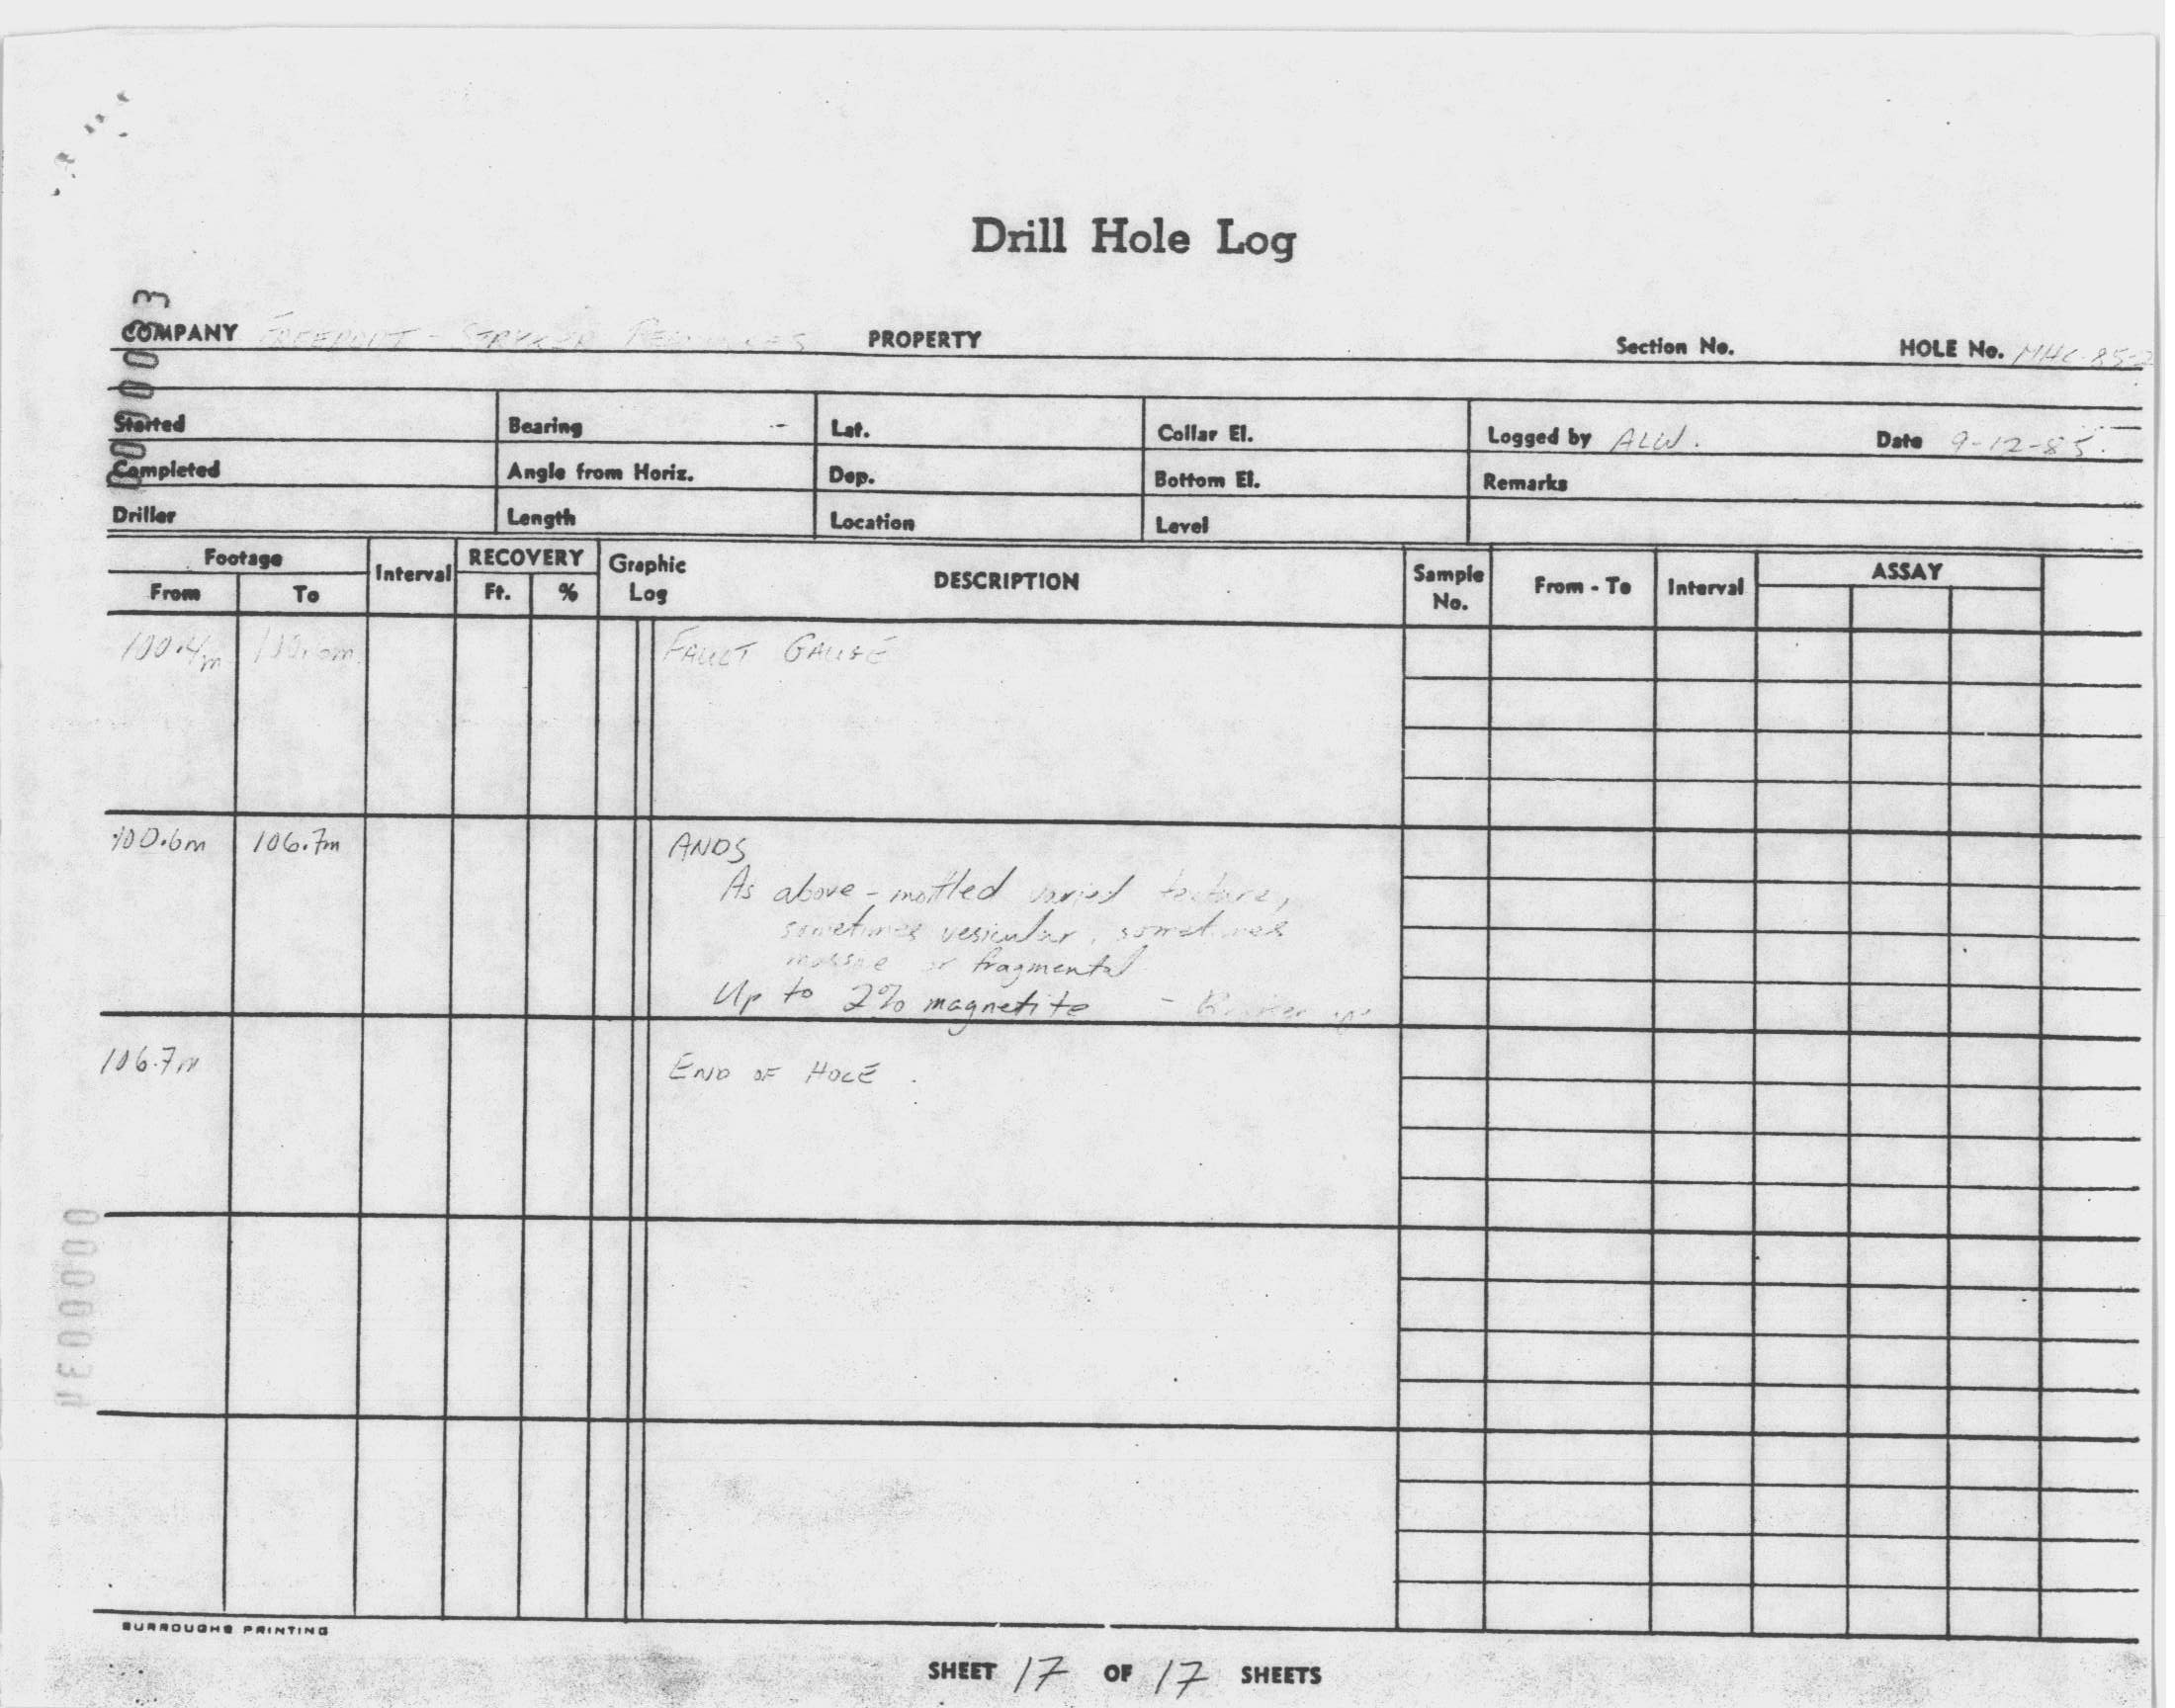 Drill Hole Log
COMPANY FREEPORT - STRYKER RESOURCES PROPERTY Section No. HOLE No. MHC-85-2
Started Bearing Lat. Collar El. Logged by ALW. Date 9-12-85.
Completed Angle from Horiz. Dep. Bottom El. Remarks
Driller Length Location Level
Footage Interval RECOVERY Graphic Log DESCRIPTION Sample No. From - To Interval ASSAY
From To Ft. %
100.4m 100.6m FAULT GAUGE
100.6m 106.7m ANDS
As above - mottled varied texture,
sometimes vesicular, sometimes
massive or fragmental
Up to 2% magnetite -
106.7m END OF HOLE.
0000033
0000034
BURROUGHS PRINTING
SHEET 17 OF 17 SHEETS